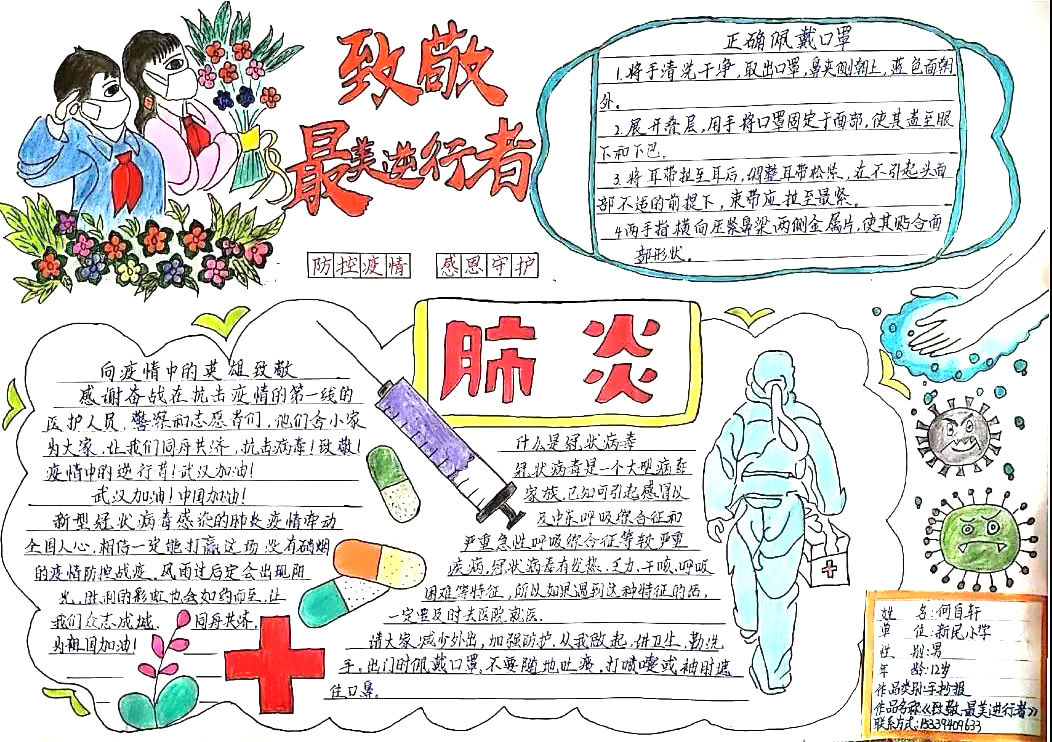 致敬
最美逆行者
防控疫情 感恩守护
正确佩戴口罩
1.将手清洗干净,取出口罩,鼻夹侧朝上,蓝色面朝
外。
2.展开叠层,用手将口罩固定于面部,使其盖至眼
下和下巴。
3.将耳带拉至耳后,调整耳带松紧,在不引起头面
部不适的前提下,束带应拉至最紧。
4.两手指横向压紧鼻梁两侧金属片,使其贴合面
部形状。
肺炎
向疫情中的英雄致敬
感谢奋战在抗击疫情的第一线的
医护人员,警察和志愿者们,他们舍小家
为大家,让我们同舟共济,抗击病毒!致敬!
疫情中的逆行者!武汉加油!
武汉加油!中国加油!
新型冠状病毒感染的肺炎疫情牵动
全国人心,相信一定能打赢这场没有硝烟
的疫情防控战疫、风雨过后定会出现阳
光,胜利的彩虹也会如约而至,让
我们众志成城、同舟共济,
为祖国加油!
什么是冠状病毒
冠状病毒是一个大型病毒
家族,已知可引起感冒以
及中东呼吸综合征和
严重急性呼吸综合征等较严重
疾病,冠状病毒有发热、乏力、干咳、呼吸
困难等特征,所以如果遇到这种特征的话,
一定要及时去医院就医。
请大家减少外出,加强防护,从我做起,讲卫生,勤洗
手,出门时佩戴口罩,不要随地吐痰,打喷嚏或袖肘遮
住口鼻。
姓 名:何自轩
单 位:新民小学
性 别:男
年 龄:12岁
作品类别:手抄报
作品名称:《致敬最美逆行者》
联系方式:15339409633